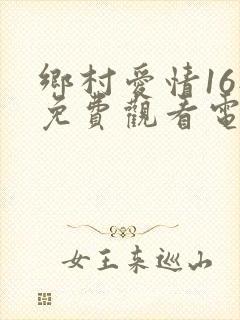 鄉村愛情16
免費觀看電
女王來巡山